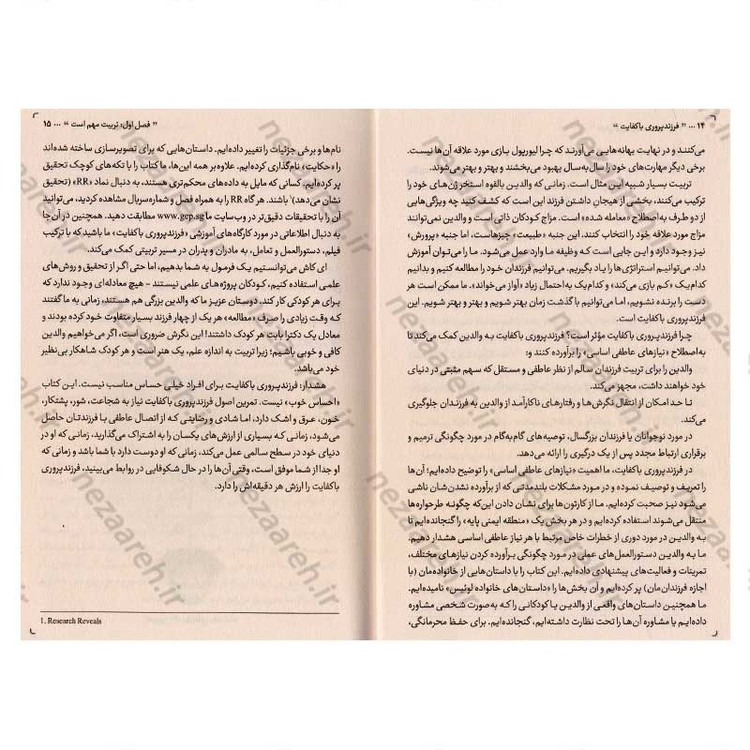 ۱۴ ... " فرزندپروری باکفایت "
می‌کنند و در نهایت بهانه‌هایی می‌آورند که چرا لیورپول بازی مورد علاقه آن‌ها نیست.
برخی دیگر مهارت‌های خود را سال‌به‌سال بهبود می‌بخشند و بهتر و بهتر می‌شوند.
تربیت بسیار شبیه این مثال است. زمانی که والدین بالقوه استخر ژن‌های خود را
ترکیب می‌کنند، بخشی از هیجان داشتن فرزند این است که کشف کنید چه ویژگی‌هایی
از دو طرف به‌اصطلاح «معامله شده» است. مزاج کودکان ذاتی است و والدین نمی‌توانند
مزاج مورد علاقه خود را انتخاب کنند. این جنبه «طبیعت» چیزهاست، اما جنبه «پرورش»
نیز وجود دارد و این جایی است که وظیفه ما وارد عمل می‌شود. ما را می‌توان آموزش
داد. می‌توانیم استراتژی‌ها را یاد بگیریم. می‌توانیم فرزندان خود را مطالعه کنیم و بدانیم
کدام‌یک «کم بازی می‌کند» و کدام‌یک به‌احتمال زیاد «آواز می‌خواند». ما ممکن است هر
دست را برنده نشویم، اما می‌توانیم با گذشت زمان بهتر شویم و بهتر و بهتر شویم. این
فرزندپروری باکفایت است.
چرا فرزندپروری باکفایت مؤثر است؟ فرزندپروری باکفایت به والدین کمک می‌کند تا
به‌اصطلاح «نیازهای عاطفی اساسی» را برآورده کنند و:
والدین را برای تربیت فرزندان سالم از نظر عاطفی و مستقل که سهم مثبتی در دنیای
خود خواهند داشت، مجهز می‌کند.
تا حد امکان از انتقال نگرش‌ها و رفتارهای ناکارآمد از والدین به فرزندان جلوگیری
می‌کند.
در مورد نوجوانان یا فرزندان بزرگسال، توصیه‌های گام‌به‌گام در مورد چگونگی ترمیم و
برقراری ارتباط مجدد پس از یک درگیری را ارائه می‌دهد.
در فرزندپروری باکفایت، ما اهمیت «نیازهای عاطفی اساسی» را توضیح داده‌ایم؛ آن‌ها
را تعریف و توصیف نموده و در مورد مشکلات بلندمدتی که از برآورده نشدن‌شان ناشی
می‌شود نیز صحبت کرده‌ایم. ما از کارتون‌ها برای نشان دادن این‌که چگونه طرحواره‌ها
منتقل می‌شوند استفاده کرده‌ایم و در هر بخش یک «منطقه ایمنی پایه» را گنجانده‌ایم تا
به والدین در مورد دوری از خطرات خاص مرتبط با هر نیاز عاطفی اساسی هشدار دهیم.
ما به والدین دستورالعمل‌های عملی در مورد چگونگی برآورده کردن نیازهای مختلف،
تمرینات و فعالیت‌های پیشنهادی داده‌ایم. این کتاب را با داستان‌هایی از خانواده‌مان (با
اجازه فرزندان‌مان) پر کرده‌ایم و آن بخش‌ها را «داستان‌های خانواده لوئیس» نامیده‌ایم.
ما همچنین داستان‌های واقعی از والدین یا کودکانی را که به‌صورت شخصی مشاوره
داده‌ایم یا مشاوره آن‌ها را تحت نظارت داشته‌ایم، گنجانده‌ایم. برای حفظ محرمانگی،
" فصل اول: تربیت مهم است " ... ۱۵
نام‌ها و برخی جزئیات را تغییر داده‌ایم. داستان‌هایی که برای تصویرسازی ساخته شده‌اند
را «حکایت» نام‌گذاری کرده‌ایم. علاوه‌بر همه این‌ها، ما کتاب را با تکه‌های کوچک تحقیق
پر کرده‌ایم. کسانی که مایل به داده‌های محکم‌تری هستند، به‌دنبال نماد «RR» (تحقیق
نشان می‌دهد)۱ باشند. هرگاه RR را به همراه فصل و شماره‌سریال مشاهده کردید، می‌توانید
آن را با تحقیقات دقیق‌تر در وب‌سایت ما www.gep.sg مطابقت دهید. همچنین در آن‌جا
به دنبال اطلاعاتی در مورد کارگاه‌های آموزشی «فرزندپروری باکفایت» ما باشید که با ترکیب
فیلم، دستورالعمل و تعامل، به مادران و پدران در مسیر تربیتی کمک می‌کند.
ای کاش می‌توانستیم یک فرمول به شما بدهیم، اما حتی اگر از تحقیق و روش‌های
علمی استفاده کنیم، کودکان پروژه‌های علمی نیستند – هیچ معادله‌ای وجود ندارد که
برای هر کودکی کار کند. دوستان عزیز ما که والدین بزرگی هم هستند، زمانی به ما گفتند
که وقت زیادی را صرف «مطالعه» هر یک از چهار فرزند بسیار متفاوت خود کرده بودند و
معادل یک دکترا بابت هر کودک داشتند! این نگرش ضروری است، اگر می‌خواهیم والدین
کافی و خوبی باشیم؛ زیرا تربیت به اندازه علم، یک هنر است و هر کودک شاهکار بی‌نظیر
خود می‌باشد.
هشدار: فرزندپروری باکفایت برای افراد خیلی حساس مناسب نیست. این کتاب
«احساس خوب» نیست. تمرین اصول فرزندپروری باکفایت نیاز به شجاعت، شور، پشتکار،
خون، عرق و اشک دارد، اما شادی و رضایتی که از اتصال عاطفی با فرزندتان حاصل
می‌شود، زمانی که بسیاری از ارزش‌های یکسان را به اشتراک می‌گذارید، زمانی که او در
دنیای خود در سطح سالمی عمل می‌کند، زمانی که او دوست دارد با شما باشد و زمانی که
او جدا از شما موفق است، وقتی آن‌ها را در حال شکوفایی در روابط می‌بینید، فرزندپروری
باکفایت را ارزش هر دقیقه‌اش را دارد.
1. Research Reveals
nezaareh.ir